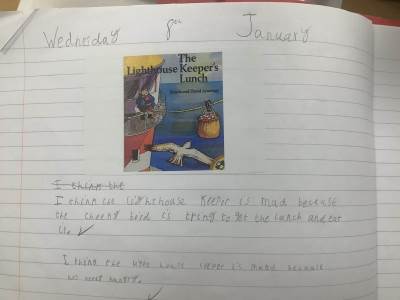 Wednesday 8th January
The
Lighthouse Keeper's
Lunch
Ronda and David Armitage
I think the
I think the lighthouse keeper is mad because
the cheeky bird is trying to get the lunch and eat
I think the keeper is because
hungry.